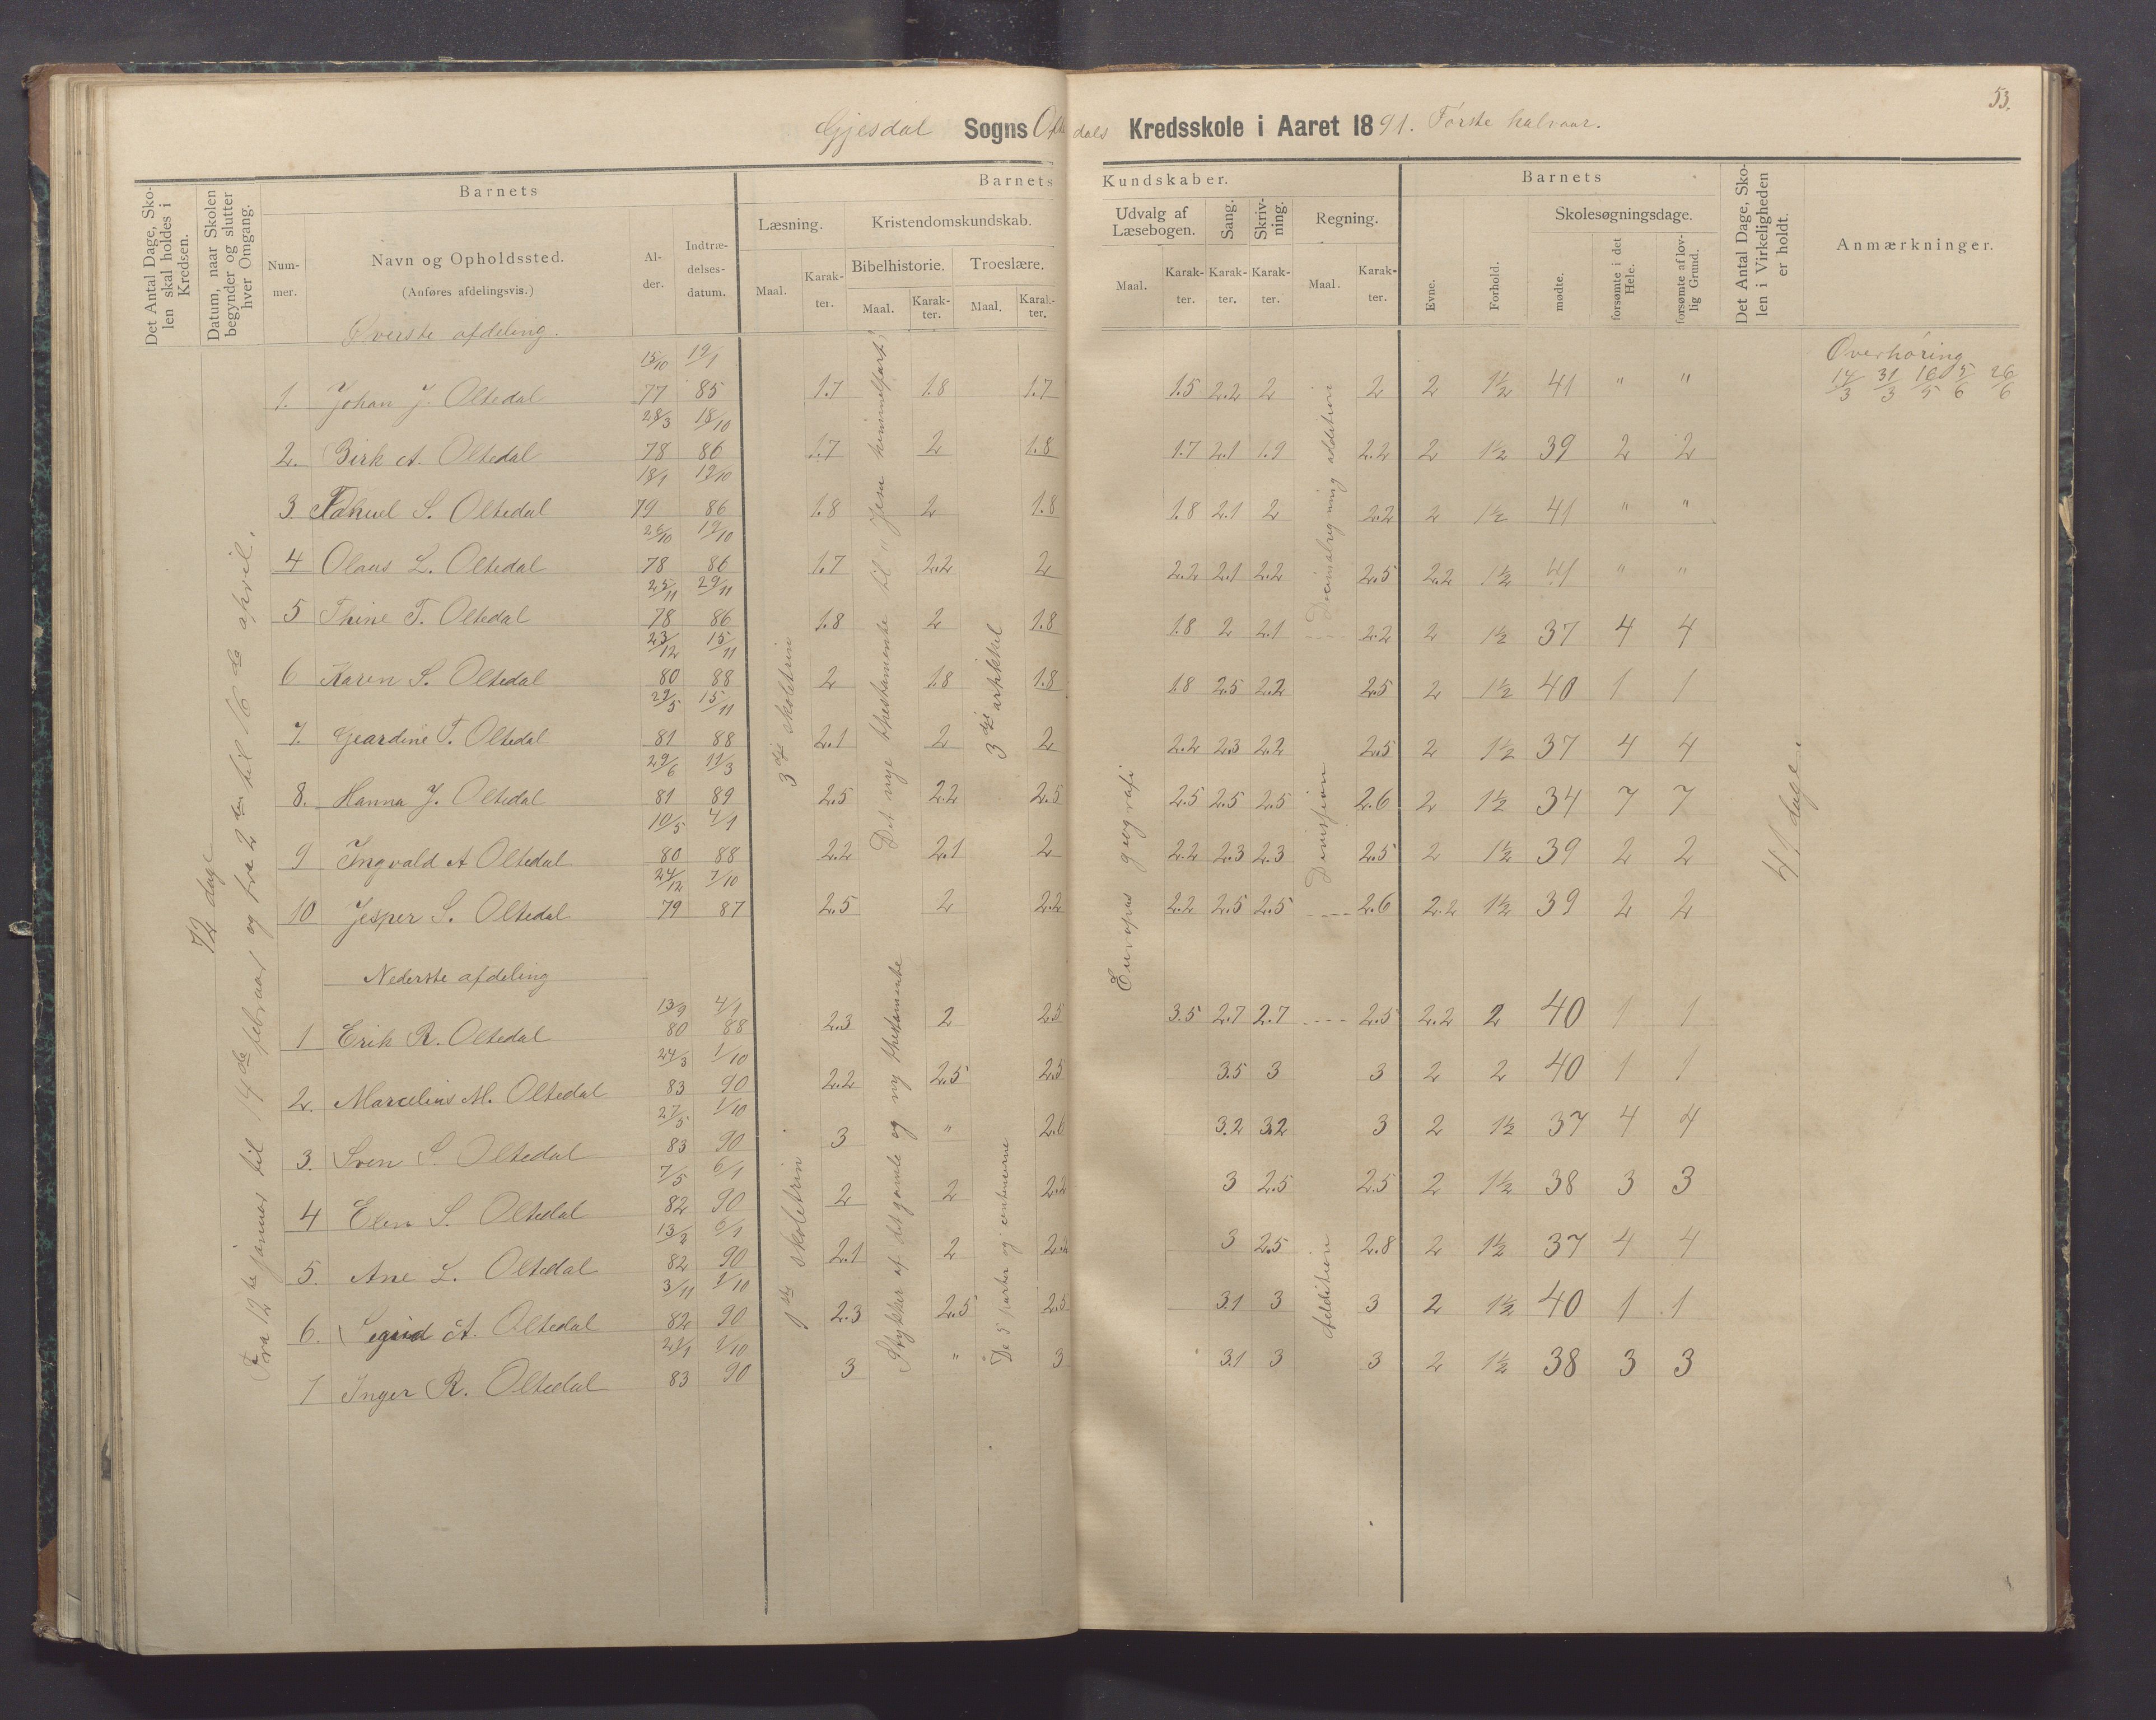 53.
Gjesdal Sogns Oltedals Kredsskole i Aaret 1891. Første halvaar.
Det Antal Dage, Skolen skal holdes i Kredsen.
Datum, naar Skolen begynder og slutter hver Omgang.
Barnets
Nummer.
Navn og Opholdssted.
(Anføres afdelingsvis.)
Alder.
Indtrædelsesdatum.
Barnets Kundskaber.
Læsning.
Maal.
Karakter.
Kristendomskundskab.
Bibelhistorie.
Maal.
Karakter.
Troeslære.
Maal.
Karakter.
Udvalg af Læsebogen.
Maal.
Karakter.
Sang.
Karakter.
Skrivning.
Karakter.
Regning.
Maal.
Karakter.
Barnets
Evne.
Forhold.
Skolesøgningsdage.
mødte.
forsømte i det Hele.
forsømte af lovlig Grund.
Det Antal Dage, Skolen i Virkeligheden er holdt.
Anmærkninger.
72 dage
Fra 12te januar til 14de februar og fra 2den til 16de april.
3dje skoletrin
Det nye thestamente til "Jesu himmelfart"
3dje artikkel
Europas geografi
Decimalregning addition
Division
41 dage.
Overhøring
14/3 31/3 16/5 5/6 26/6
Øverste afdeling.
1. Johan J. Oltedal 15/10 77 12/1 85 1.7 1.8 1.7 1.5 2.2 2 2 2 1½ 41 " "
2. Birk A. Oltedal 28/3 78 18/10 86 1.7 2 1.8 1.7 2.1 1.9 2.2 2 1½ 39 2 2
3. S. Oltedal 18/1 79 12/10 86 1.8 2 1.8 1.8 2.1 2 2.2 2 1½ 41 " "
4 Olaus L. Oltedal 26/10 78 12/10 86 1.7 2.2 2 2.2 2.1 2.2 2.5 2.2 1½ 41 " "
5 Thine T. Oltedal 25/11 78 29/11 86 1.8 2 1.8 1.8 2 2.1 2.2 2 1½ 37 4 4
6 Karen S. Oltedal 23/12 80 15/11 88 2 1.8 1.8 1.8 2.5 2.2 2.5 2 1½ 40 1 1
7. Geardine T. Oltedal 22/5 81 15/11 88 2.1 2 2 2.2 2.3 2.2 2.5 2 1½ 37 4 4
8. Hanna J. Oltedal 29/6 81 12/3 89 2.5 2.2 2.5 2.5 2.5 2.5 2.6 2 1½ 34 7 7
9 Ingvald A Oltedal 10/5 80 7/1 88 2.2 2.1 2 2.2 2.3 2.3 2.5 2 1½ 39 2 2
10 Jesper S. Oltedal 24/12 79 7/10 87 2.5 2 2.2 2.2 2.5 2.5 2.6 2.2 1½ 39 2 2
Nederste afdeling
1ste skoletrin
Stykker af det gamle og ny thestamente
De 5 parter og
Addition
1 Erik R. Oltedal 13/9 80 4/1 88 2.3 2 2.5 3.5 2.7 2.7 2.5 2.2 2 40 1 1
2. Marcelius M. Oltedal 24/3 83 1/10 90 2.2 2.5 2.5 3.5 3 3 2 2 40 1 1
3. Sven S. Oltedal 27/5 83 1/10 90 3 " 2.6 3.2 3.2 3 2 1½ 37 4 4
4 Elen S. Oltedal 7/5 82 6/1 90 2 2 2.2 3 2.5 2.5 2 1½ 38 3 3
5. Ane L. Oltedal 82 6/1 90 2.1 2 2.2 3 2.5 2.8 2 1½ 37 4 4
6. Sigrid A. Oltedal 3/11 82 1/10 90 2.3 2.5 2.5 3.1 3 3 2 1½ 40 1 1
7 Inger R. Oltedal 21/1 83 1/10 90 3 " 3 3.1 3 3 2 1½ 38 3 3